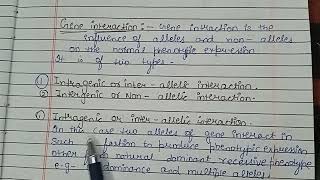 Gene interaction:- Gene intraction is the
influence of alleles and non-alleles
on the normal phenotypic expression
It is of two types-
① Intragenic or inter-allelic interaction.
② Intergenic or Non-allelic interaction.
① Intragenic or inter-allelic interaction.
In this case two alleles of gene interact in
Such fastion to produce phenotypic expression
other natural dominant recessive phenotype
e-g- dominance and multiple alleles